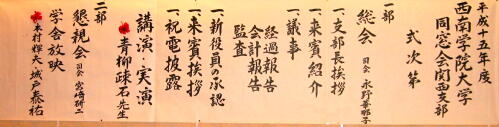 平成十五年度
西南学院大学
同窓会関西支部
式次第
一部
総会 司会 永野華那子
一.支部長挨拶
一.来賓紹介
一.議事
経過報告
会計報告
監査
一.新役員の承認
一.来賓挨拶
一.祝電披露
講演・実演
青柳疎石先生
二部
懇親会 司会 宮崎研二
学舎放映
木村輝夫 城戸恭祐